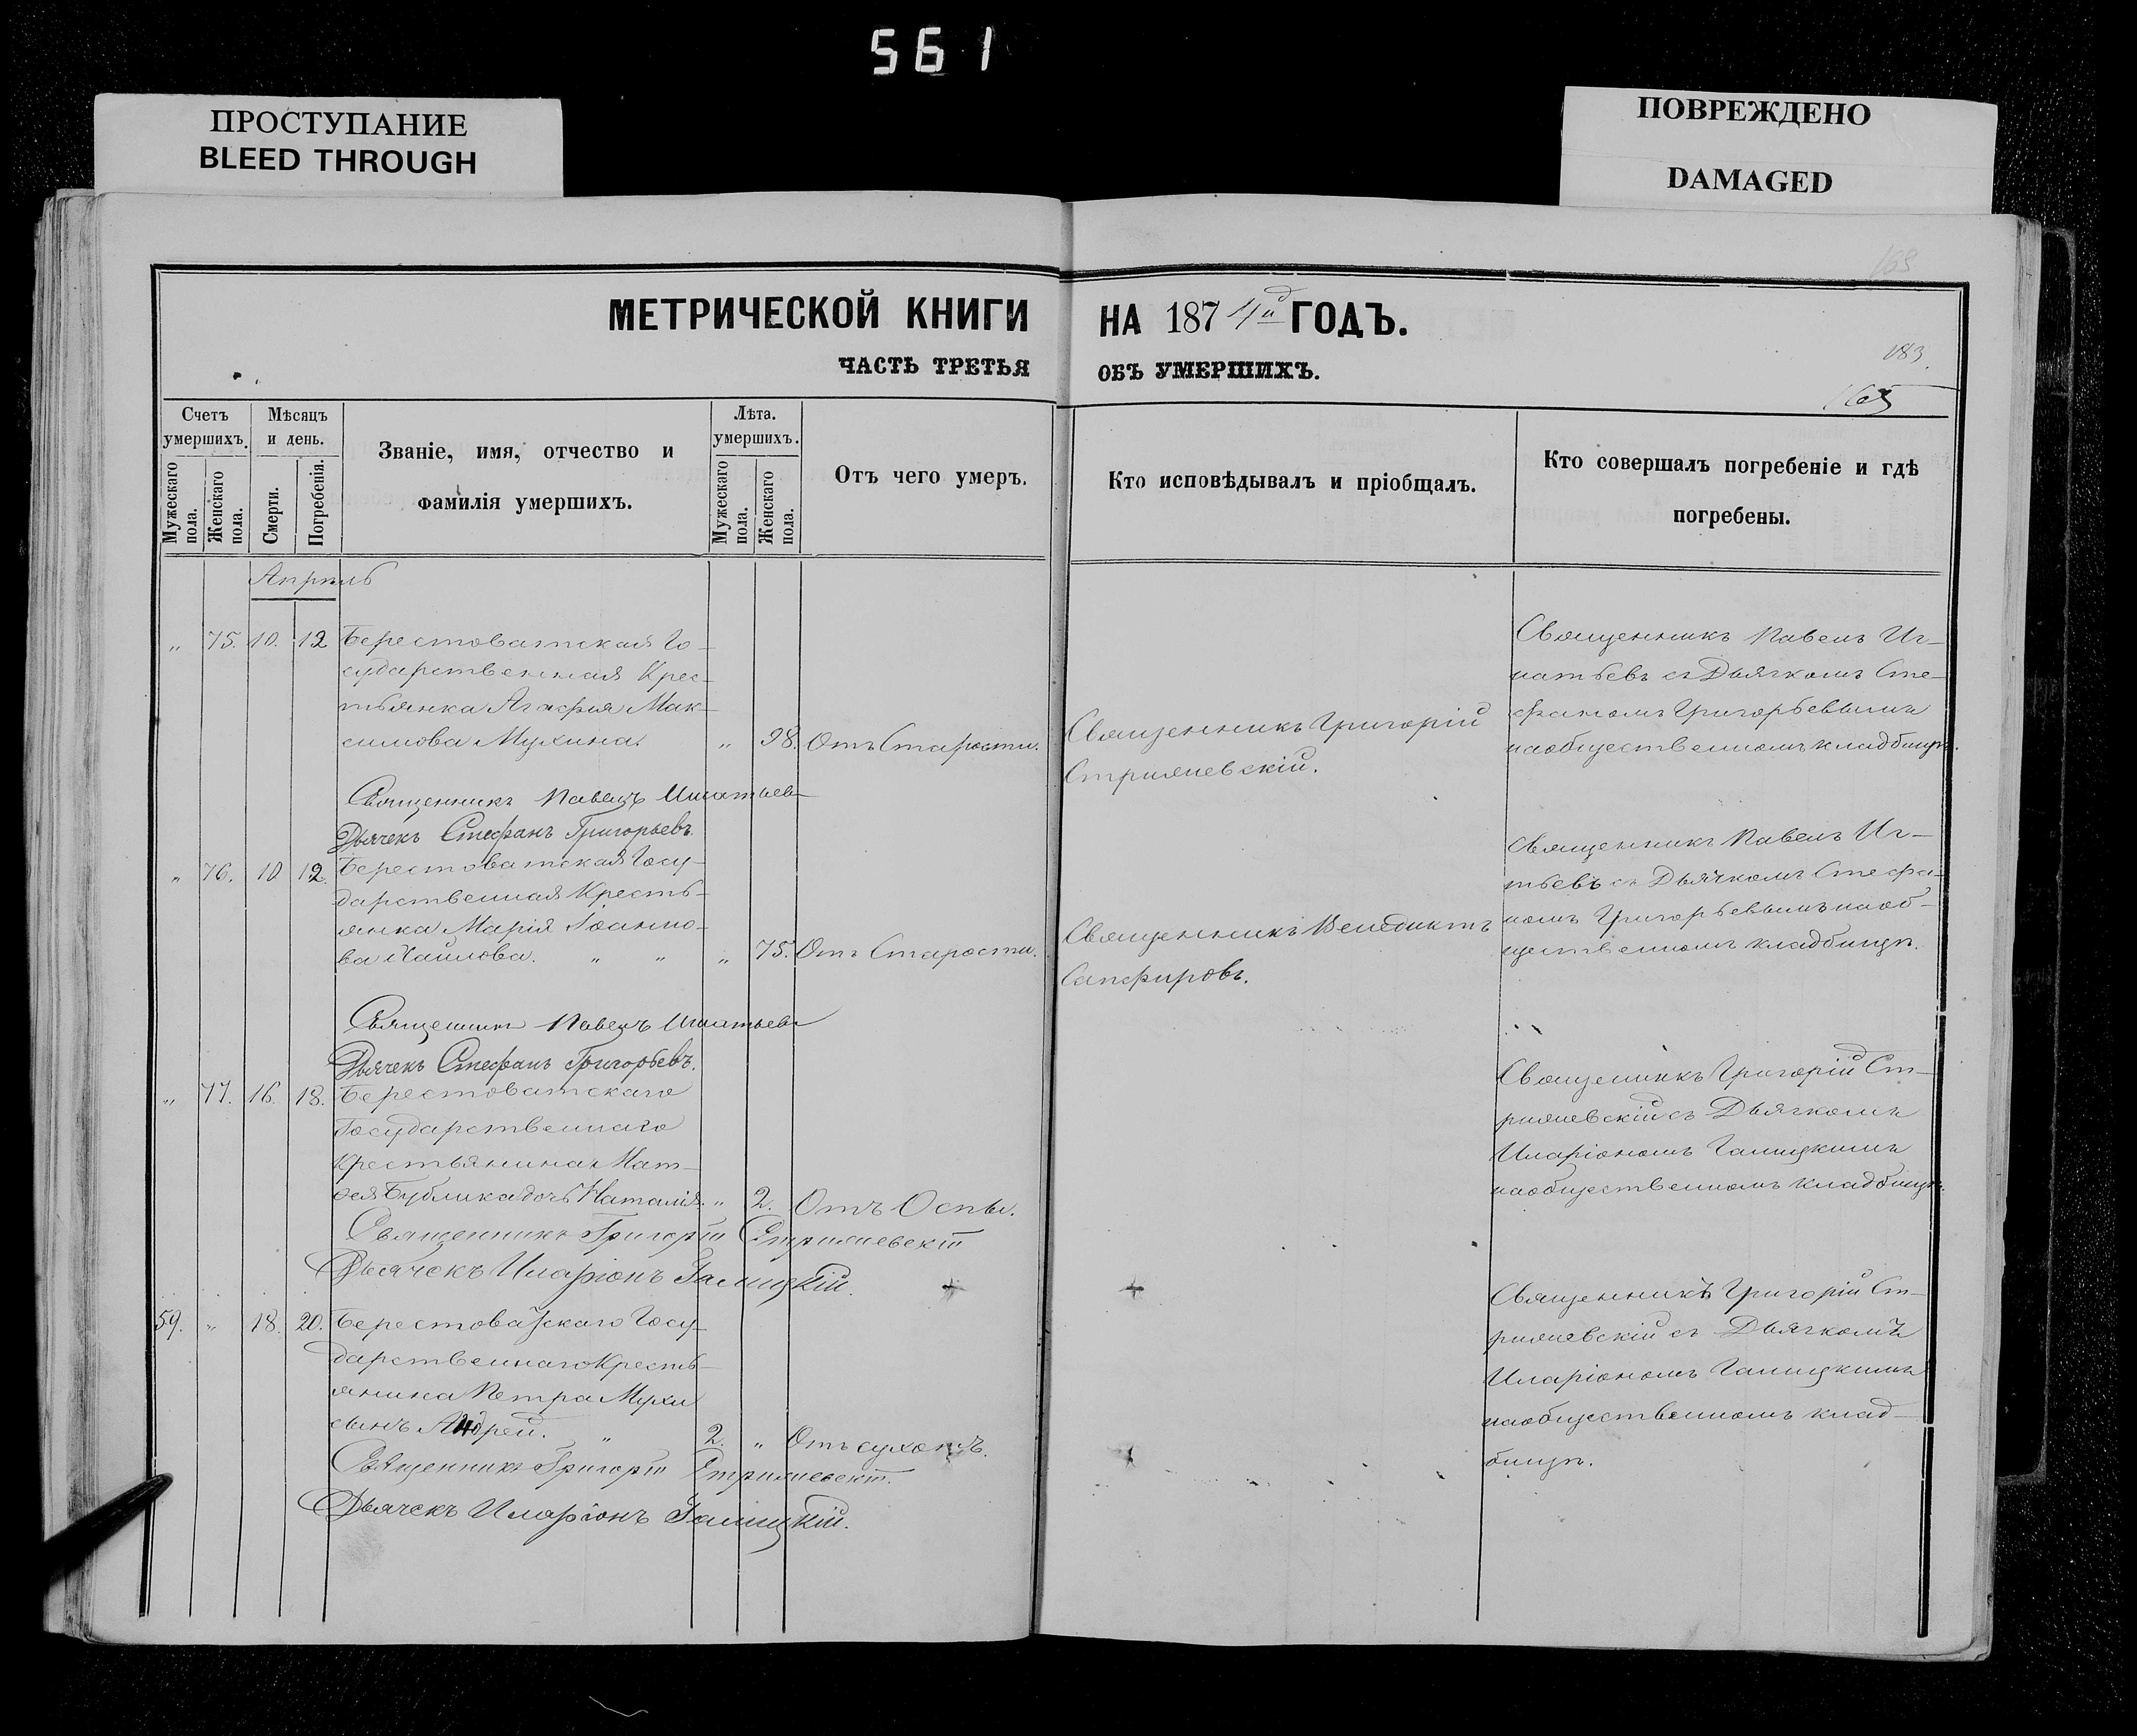 561
ПРОСТУПАНИЕ
BLEED THROUGH
ПОВРЕЖДЕНО
DAMAGED
МЕТРИЧЕСКОЙ КНИГИ НА 1874й ГОДЪ.
ЧАСТЬ ТРЕТЬЯ ОБЪ УМЕРШИХЪ.
183
165
Счетъ умершихъ.
Мужескаго пола.
Женскаго пола.
Мѣсяцъ и день.
Смерти.
Погребенія.
Званіе, имя, отчество и
фамилія умершихъ.
Лѣта. умершихъ.
Мужескаго пола.
Женскаго пола.
Отъ чего умеръ.
Кто исповѣдывалъ и пріобщалъ.
Кто совершалъ погребеніе и гдѣ
погребены.
Апрѣль
„ 75. 10. 12 Берестоватская Го-
сударственная Крес-
тьянка Агафія Мак-
симова Мухина. „ 98. Отъ Старости.
Священникъ Григорій
Стрияневскій.
Священникъ Павелъ Иг-
натьевъ съ Дьячкомъ Сте-
фаномъ Григорьевымъ
наобщественномъ кладбищѣ.
Священникъ Павелъ Игнатьевъ
Дьячекъ Стефанъ Григорьевъ.
„ 76. 10 12. Берестоватская Госу-
дарственная Кресть-
янка Марія Іоанно-
ва „ „ „ 75. Отъ Старости.
Священникъ Венедиктъ
Сапфировъ.
Священникъ Павелъ Иг-
тьевъ съ Дьячкомъ Стефа-
номъ Григорьевымъ наоб-
щественномъ кладбищѣ.
Священникъ Павелъ Игнатьевъ
Дьячекъ Стефанъ Григорьевъ.
„ 77. 16. 18. Берестоватскаго
Государственнаго
крестьянина Мат-
ѳея Бублика дочь Наталія. „ 2. Отъ Оспы.
Священникъ Григорій Ст-
рияневскій съ Дьячкомъ
Иларіономъ Галицкимъ
наобщественномъ кладбищѣ.
Священникъ Григорій Стрияневскій
Дьячекъ Иларіонъ Галицкій.
59. „ 18. 20. Берестоватскаго Госу-
дарственнаго Кресть-
янина Петра Мухи
сынъ Андрей. „ 2. „ Отъ сухотъ.
Священникъ Григорій Ст-
рияневскій съ Дьячкомъ
Иларіономъ Галицкимъ
наобщественномъ клад-
бищѣ.
Священникъ Григорій Стрияневскій.
Дьячекъ Иларіонъ Галицкій.